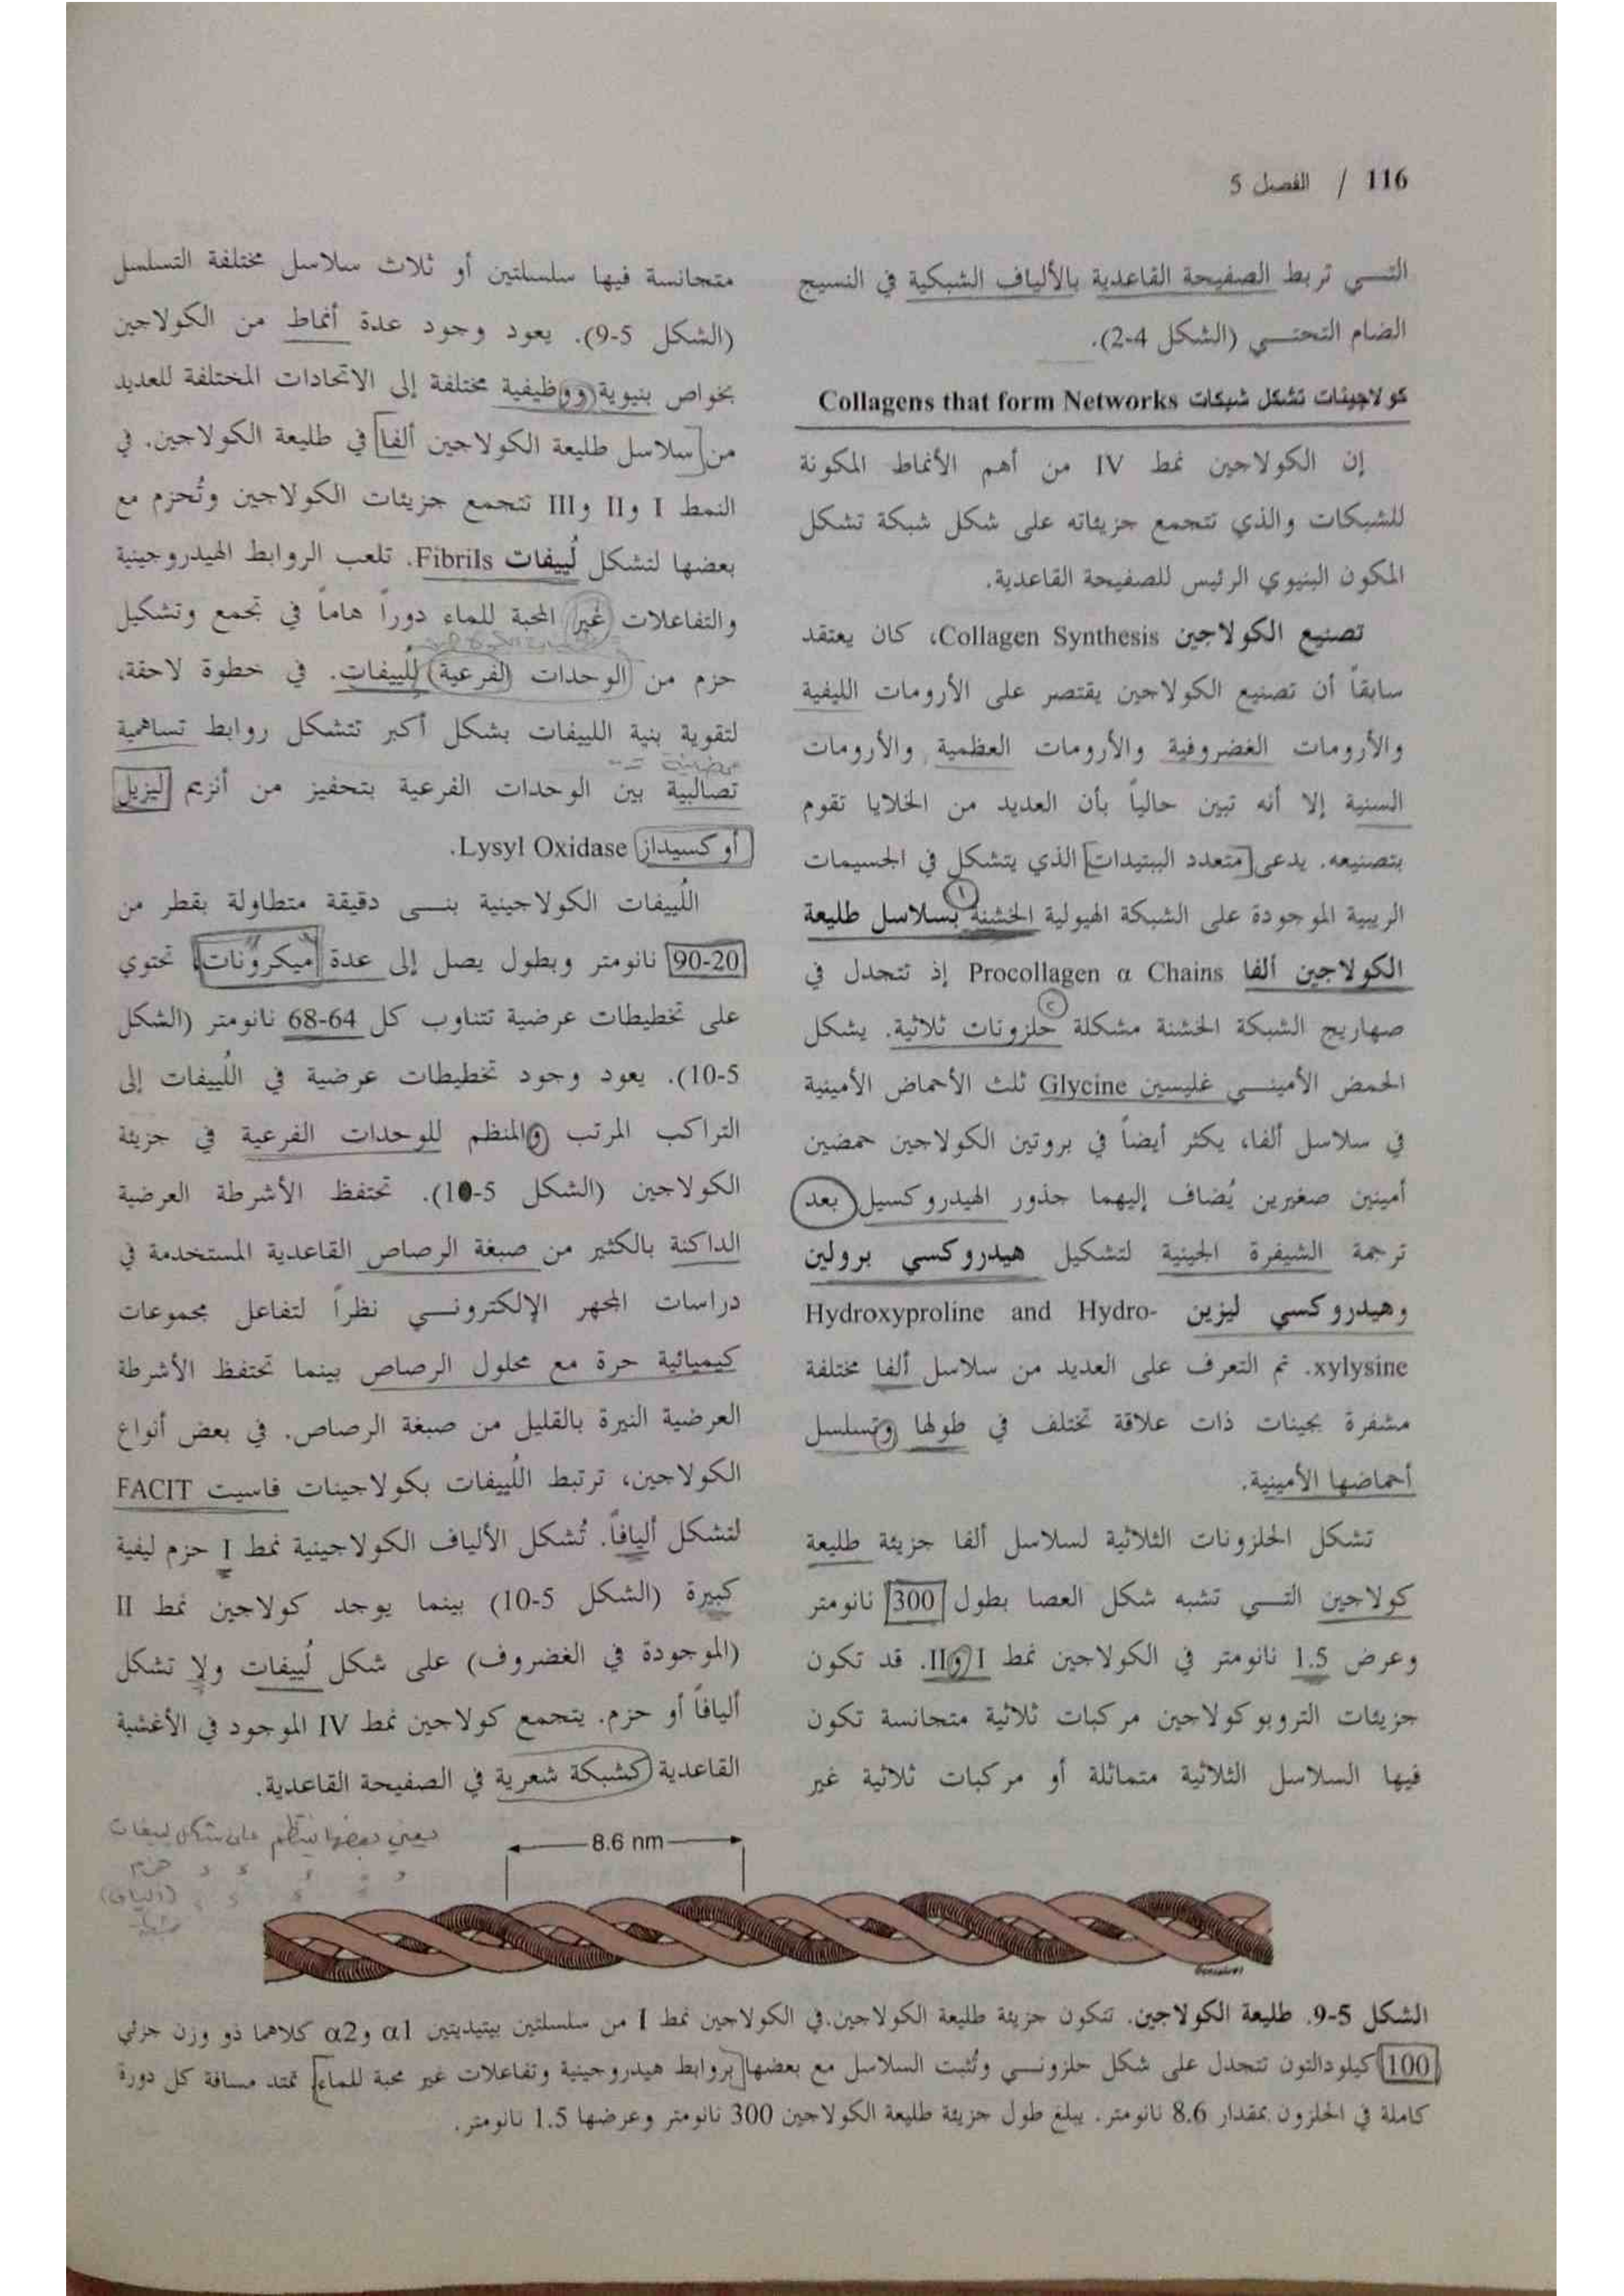 116 / الفصل 5
التـــي تربط الصفيحة القاعدية بالألياف الشبكية في النسيج
الضام التحتـــي (الشكل 4-2).
كولاجينات تشكل شبكات Collagens that form Networks
إن الكولاجين نمط IV من أهم الأنماط المكونة
للشبكات والذي تتجمع جزيئاته على شكل شبكة تشكل
المكون البنيوي الرئيس للصفيحة القاعدية.
تصنيع الكولاجين Collagen Synthesis، كان يعتقد
سابقاً أن تصنيع الكولاجين يقتصر على الأرومات الليفية
والأرومات الغضروفية والأرومات العظمية والأرومات
السنية إلا أنه تبين حالياً بأن العديد من الخلايا تقوم
بتصنيعه. يدعى [متعدد الببتيدات] الذي يتشكل في الجسيمات
الريبية الموجودة على الشبكة الهيولية الخشنة بسلاسل طليعة
الكولاجين ألفا Procollagen α Chains إذ تتجدل في
صهاريج الشبكة الخشنة مشكلة حلزونات ثلاثية. يشكل
الحمض الأمينـــي غليسين Glycine ثلث الأحماض الأمينية
في سلاسل ألفا، يكثر أيضاً في بروتين الكولاجين حمضين
أمينين صغيرين يُضاف إليهما جذور الهيدروكسيل بعد
ترجمة الشيفرة الجينية لتشكيل هيدروكسي برولين
وهيدروكسي ليزين Hydroxyproline and Hydro-
xylysine. تم التعرف على العديد من سلاسل ألفا مختلفة
مشفرة بجينات ذات علاقة تختلف في طولها وتسلسل
أحماضها الأمينية.
تشكل الحلزونات الثلاثية لسلاسل ألفا جزيئة طليعة
كولاجين التـــي تشبه شكل العصا بطول 300 نانومتر
وعرض 1.5 نانومتر في الكولاجين نمط I وII. قد تكون
جزيئات التروبوكولاجين مركبات ثلاثية متجانسة تكون
فيها السلاسل الثلاثية متماثلة أو مركبات ثلاثية غير
متجانسة فيها سلسلتين أو ثلاث سلاسل مختلفة التسلسل
(الشكل 5-9). يعود وجود عدة أنماط من الكولاجين
بخواص بنيوية ووظيفية مختلفة إلى الاتحادات المختلفة للعديد
من [سلاسل طليعة الكولاجين ألفا] في طليعة الكولاجين. في
النمط I وII وIII تتجمع جزيئات الكولاجين وتُحزم مع
بعضها لتشكل لُييفات Fibrils. تلعب الروابط الهيدروجينية
والتفاعلات غير المحبة للماء دوراً هاماً في تجمع وتشكيل
حزم من الوحدات الفرعية للُييفات. في خطوة لاحقة،
لتقوية بنية اللييفات بشكل أكبر تتشكل روابط تساهمية
تصالبية بين الوحدات الفرعية بتحفيز من أنزيم ليزيل
أوكسيداز Lysyl Oxidase.
اللُييفات الكولاجينية بنـــى دقيقة متطاولة بقطر من
20-90 نانومتر وبطول يصل إلى عدة ميكرونات، تحتوي
على تخطيطات عرضية تتناوب كل 64-68 نانومتر (الشكل
5-10). يعود وجود تخطيطات عرضية في اللُييفات إلى
التراكب المرتب والمنظم للوحدات الفرعية في جزيئة
الكولاجين (الشكل 5-10). تحتفظ الأشرطة العرضية
الداكنة بالكثير من صبغة الرصاص القاعدية المستخدمة في
دراسات المجهر الإلكترونـــي نظراً لتفاعل مجموعات
كيميائية حرة مع محلول الرصاص بينما تحتفظ الأشرطة
العرضية النيرة بالقليل من صبغة الرصاص. في بعض أنواع
الكولاجين، ترتبط اللُييفات بكولاجينات فاسيت FACIT
لتشكل أليافاً. تُشكل الألياف الكولاجينية نمط I حزم ليفية
كبيرة (الشكل 5-10) بينما يوجد كولاجين نمط II
(الموجودة في الغضروف) على شكل لُييفات ولا تشكل
أليافاً أو حزم. يتجمع كولاجين نمط IV الموجود في الأغشية
القاعدية كشبكة شعرية في الصفيحة القاعدية.
يعني بعضها ينتظم على شكل لييفات
حزم
(الياف)
8.6 nm
الشكل 5-9. طليعة الكولاجين. تتكون جزيئة طليعة الكولاجين.في الكولاجين نمط I من سلسلتين ببتيديتين α1 وα2 كلاهما ذو وزن جزئي
100 كيلودالتون تتجدل على شكل حلزونـــي وتُثبت السلاسل مع بعضها [بروابط هيدروجينية وتفاعلات غير محبة للماء] تمتد مسافة كل دورة
كاملة في الحلزون بمقدار 8.6 نانومتر. يبلغ طول جزيئة طليعة الكولاجين 300 نانومتر وعرضها 1.5 نانومتر.